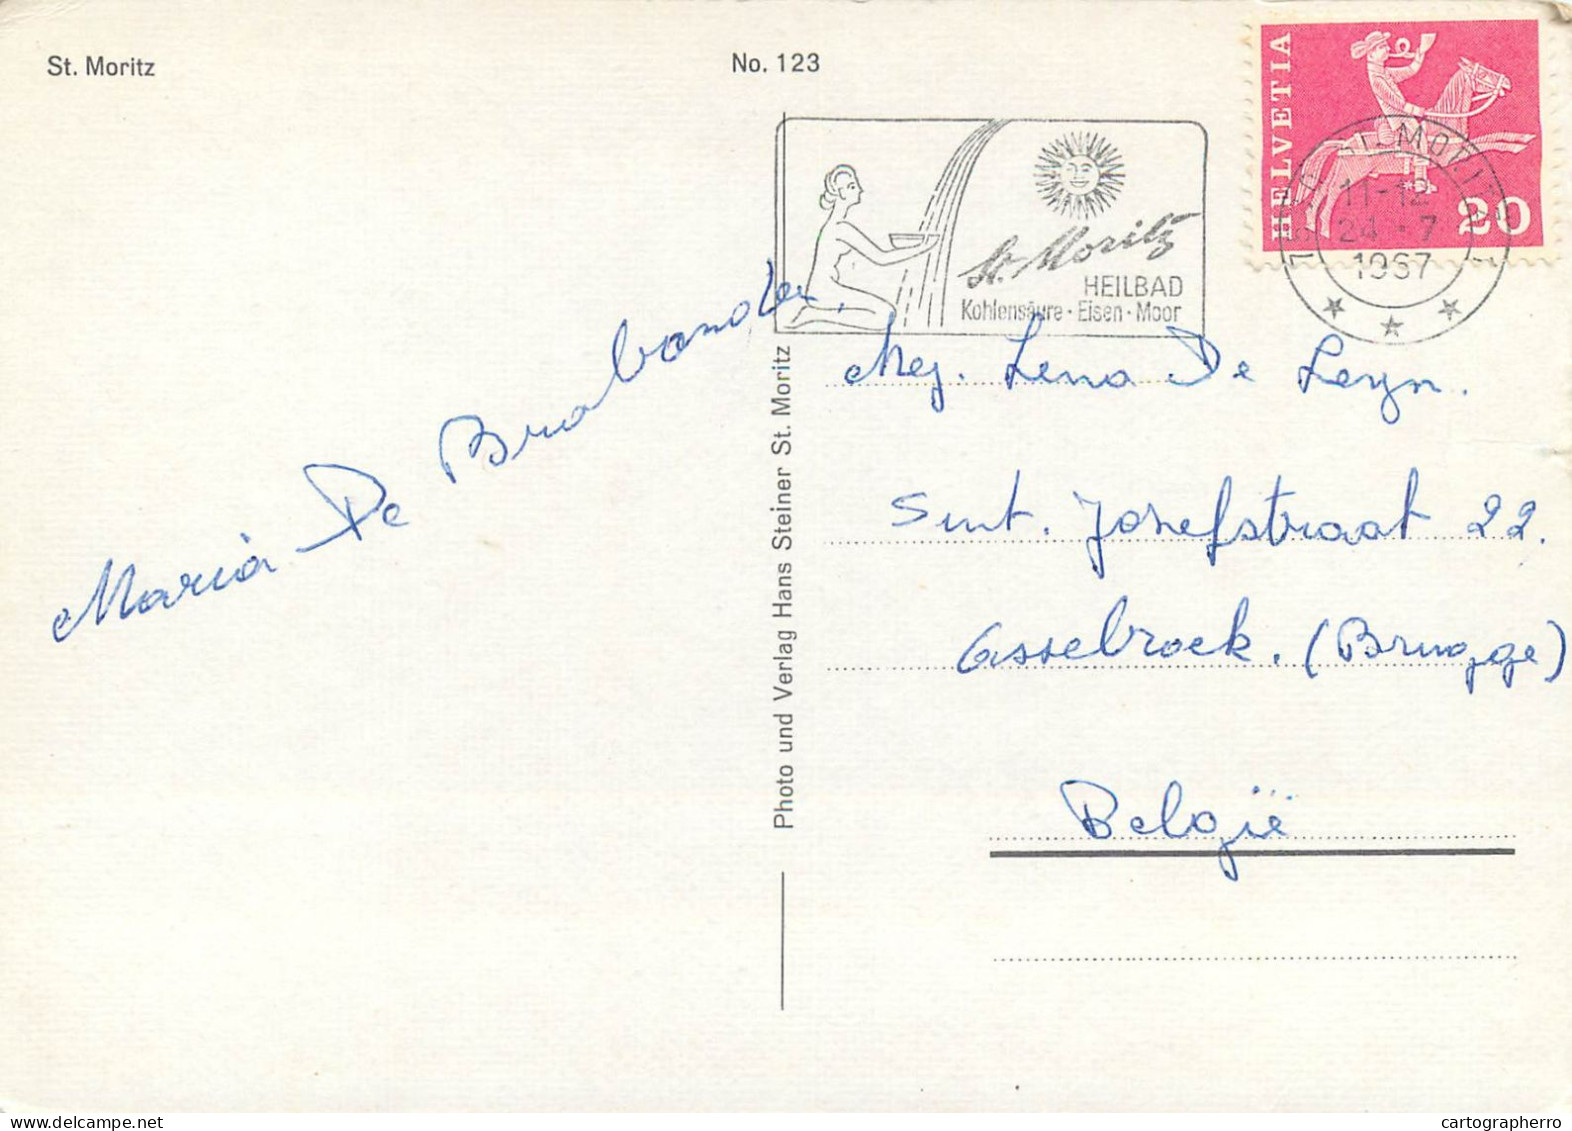 St. Moritz
No. 123
HELVETIA
20
11-12
24.-7
1967
St. Moritz
HEILBAD
Kohlensäure · Eisen · Moor
Maria De Brabander.
Photo und Verlag Hans Steiner St. Moritz
Mej. Lena De Leyn.
Sint. Jozefstraat 22.
Assebroek. (Brugge)
België
www.delcampe.net
cartographerro